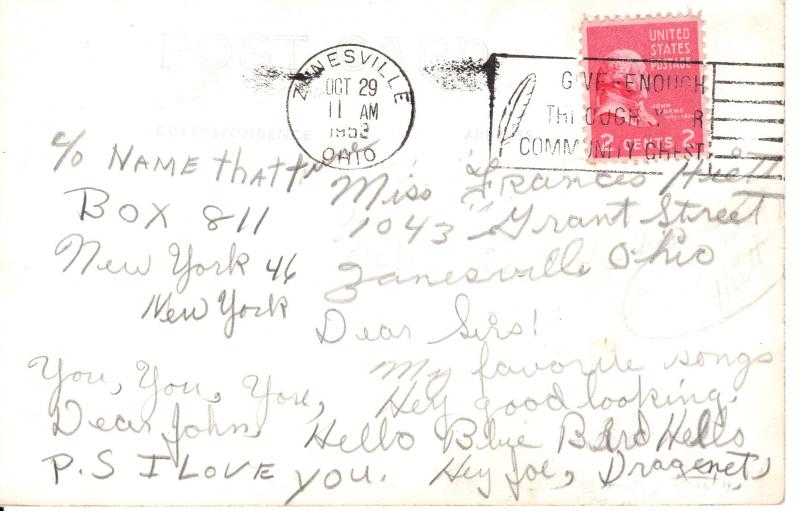 POST CARD
CORRESPONDENCE
ZANESVILLE
OCT 29
11 AM
OHIO
GIVE ENOUGH
THROUGH YOUR
COMMUNITY CHEST
UNITED
STATES
POSTAGE
JOHN
ADAMS
2 CENTS 2
c/o NAME that tune
BOX 811
New York 46
New York
Miss Frances
1043 Grant Street
Zanesville Ohio
Dear Sirs!
My favorite songs
You, You, You, Hey good looking.
Dear John Hello Blue Bird Hello
P.S I LOVE you. Hey Joe, Dragenet,